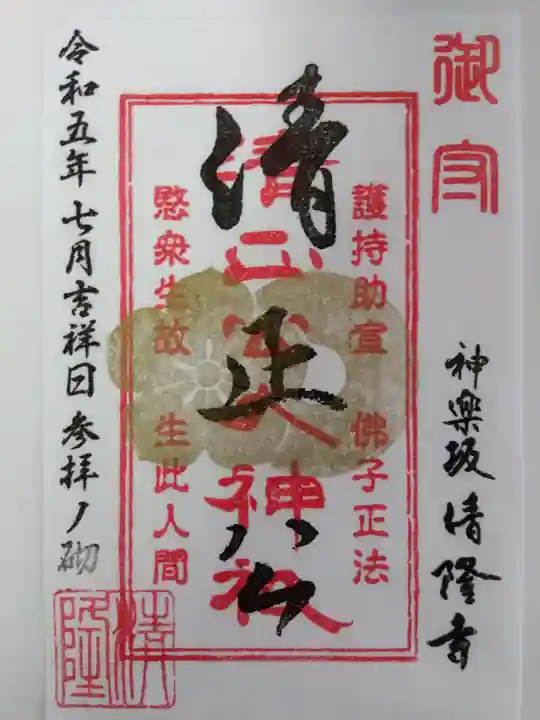 御守
神樂坂清隆寺
護持助宣 佛子正法
清正公
清正公大神祇
愍衆生故 生此人間
令和五年七月吉祥日参拝ノ砌
清隆